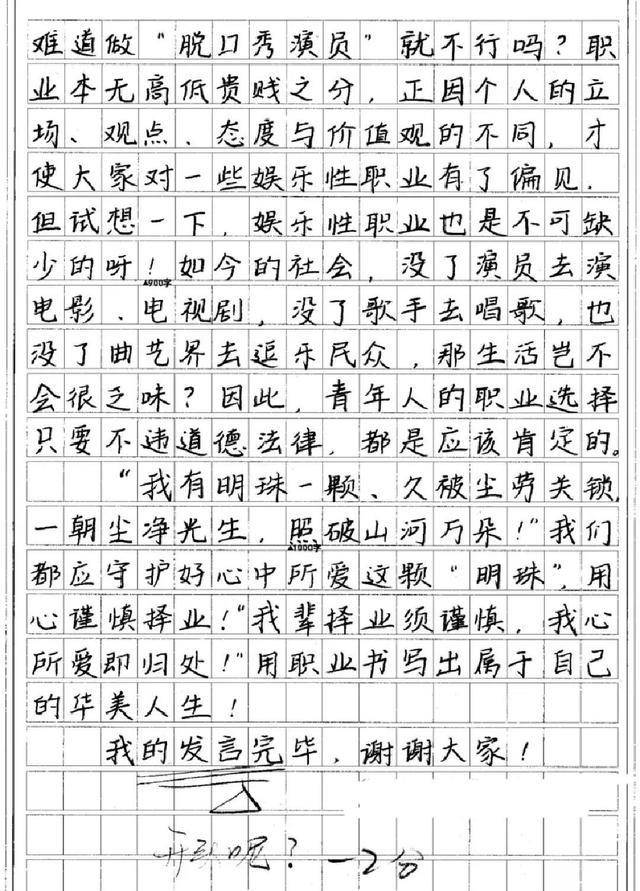 难道做“脱口秀演员”就不行吗？职
业本无高低贵贱之分，正因个人的立
场、观点、态度与价值观的不同，才
使大家对一些娱乐性职业有了偏见．
但试想一下，娱乐性职业也是不可缺
少的呀！如今的社会，没了演员去演
▲900字
电影、电视剧，没了歌手去唱歌，也
没了曲艺界去逗乐民众，那生活岂不
会很乏味？因此，青年人的职业选择
只要不违道德法律，都是应该肯定的。
“我有明珠一颗、久被尘劳关锁，
一朝尘净光生，照破山河万朵！”我们
▲1000字
都应守护好心中所爱这颗“明珠”，用
心谨慎择业！“我辈择业须谨慎，我心
所爱即归处！”用职业书写出属于自己
的华美人生！
我的发言完毕，谢谢大家！
开头呢？-2分